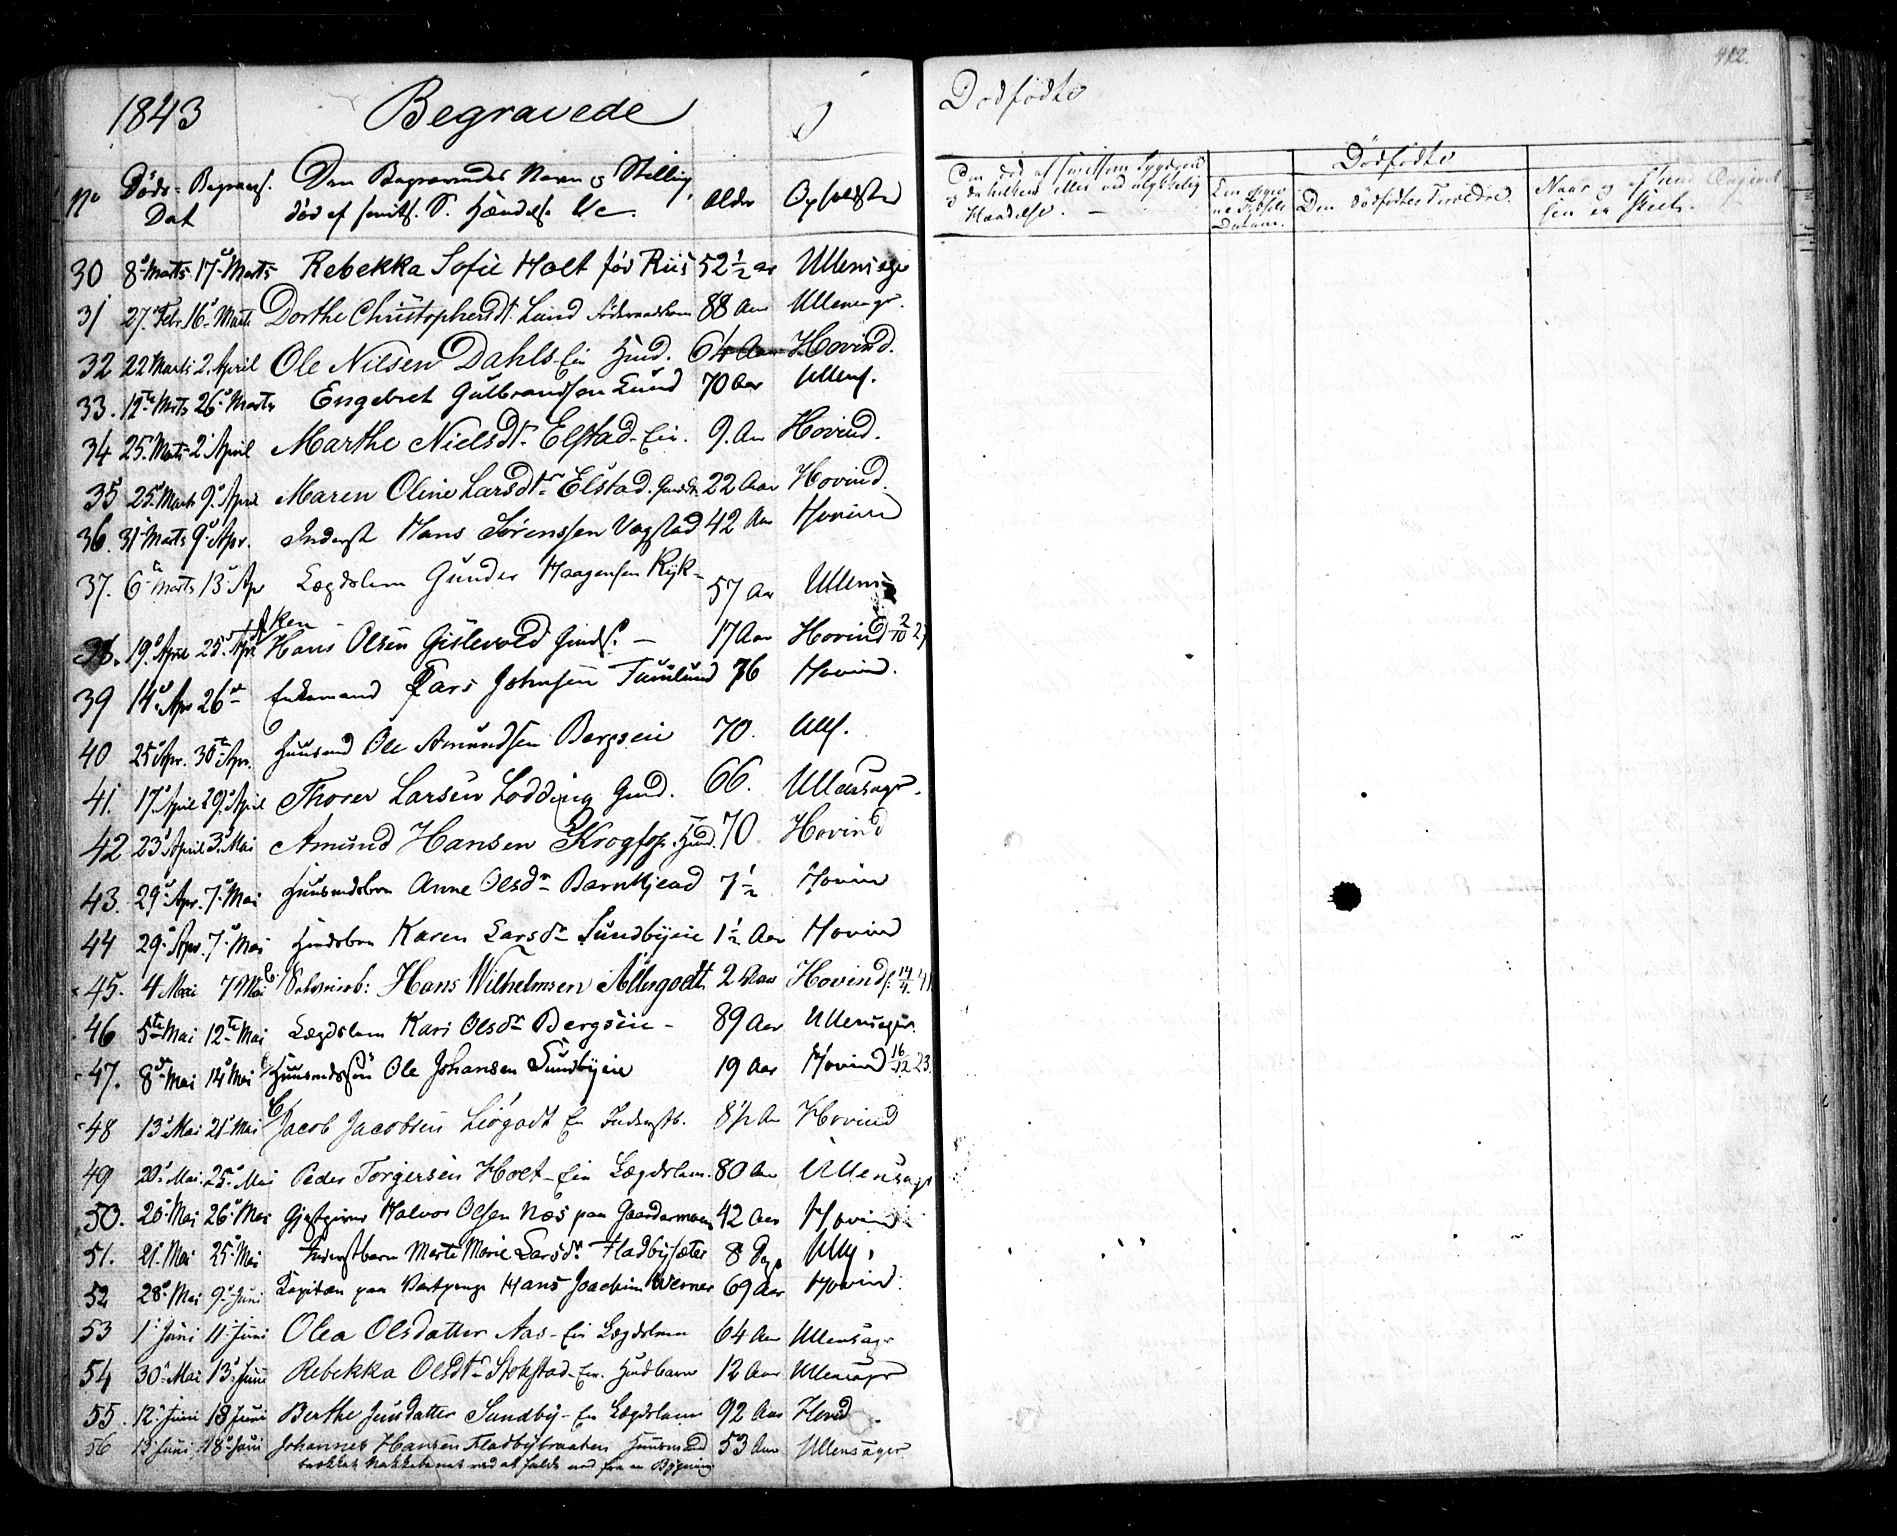 1843 Begravede
No Døds- Begravs. Den Begravedes Navn og Stilling, Alder Opholdsted
Dat død af smits. S. Hændels. &c.
30 8de Marts 17de Marts Rebekka Sofie Holt fød Riis 52 1/2 aar Ullensager
31 27. Febr. 16de Marts Dorthe Christophersdt. Lund 88 Aar Ullensagr.
32 22 Marts 2. April Ole Nilsen Dahls-Ein Hmd. 64 Aar Hovind.
33. 12te Mrts 26de Marts Engebret Gulbrandsen Lund 70 Aar Ullens.
34 25. Marts 2. April Marthe Nielsdtr. Elstad-Ein. 9. Aar Hovind.
35 25. Marts 9. April Maren Oline Larsdtr. Elstad. 22 Aar Hovind.
36. 31 Marts 9de Apr. Inderst Hans Sørenssen Vagstad 42 Aar Hovind
37. 6te Marts 13de Apr Lægdslem Gunder Haagensen Rÿk-
ken 57 Aar Ullens
38. 19. April 25. April Hans Olsen Gislevold Gmds. — 17 Aar Hovind 2/10 25
39 14de Apr 26de Enkemand Lars Johnsen Furulund 76 Hovind.
40 25 Apr. 30te Apr. Huusmd Ole Amundsen Bergseie 70. Ulls.
41. 17. April 29. April Thorer Larsen Lodding Gmd. 66. Ullensagr.
42 23 April 3. Mai Amund Hansen Krogsp. Hmd. 70 Hovind
43. 29de Apr. 7de Mai Huusmdsbrn Anne Olsdr Barnkjead 7 1/2 Hovind
44 29de Apr. 7de Mai Karen Larsdr Sundbyeie 1 1/2 Aar Hovind
45. 4 Mai 7 Mai Hans Wilhelmsen Allergodt 2 Aar Hovind f. 14/4 41
46 5te Mai 12te Mai Lægdslem Kari Olsdr Bergseie - 89 Aar Ullensager.
47. 8de Mai 14de Mai Huusmdssøn Ole Johansen Sundbyeie 19 Aar Hovind 16/12 23.
48 13de Mai 21de Mai Jacob Jacobsen Liøgodt Ein Inderstb. 8 1/2 Aar Hovind
49 20de Mai 25de Mai Peder Torgersen Holt-Ein Lægdslem. 80 Aar Ullensagr
50. 20de Mai 26de Mai Gjestgiver Halvor Olsen Næs paa Gardermoen 42 Aar Hovind
51. 21. Mai 25de Mai Inderstbarn Marte Marie Larsdr. Fladbysæter 8 Dage Ulls.
52 28de Mai 9de Juni Kapitæn paa Vartpenge Hans Joachim Werner 69 Aar Hovind.
53 1. Juni 11. Juni Olea Olsdatter Aas-Ein Lægdslem 64 Aar Ullensagr
54 30. Mai 13. Juni Rebekka Olsdtr Stokstad-Ein. Hmdbarn 12 Aar Ullensagr
55. 12. Juni 18 Juni Berthe Jensdatter Sundby-Ein Lægdslem 92 Aar Hovd.
56 13 Juni 18. Juni Johannes Hansen Fladbybraaten Huusmand 53 Aar Ullensager
brækket Nakkebenet ved at falde ned fra en Bygning
Dødfødte
412.
Dødfødte
Om død af smitsom Sygdom
og da hvilken eller ved ulykkelig
Hændelse. —
Den dødfødtes Forældre.
Naar og af hvem Angivel
sen er skeet.